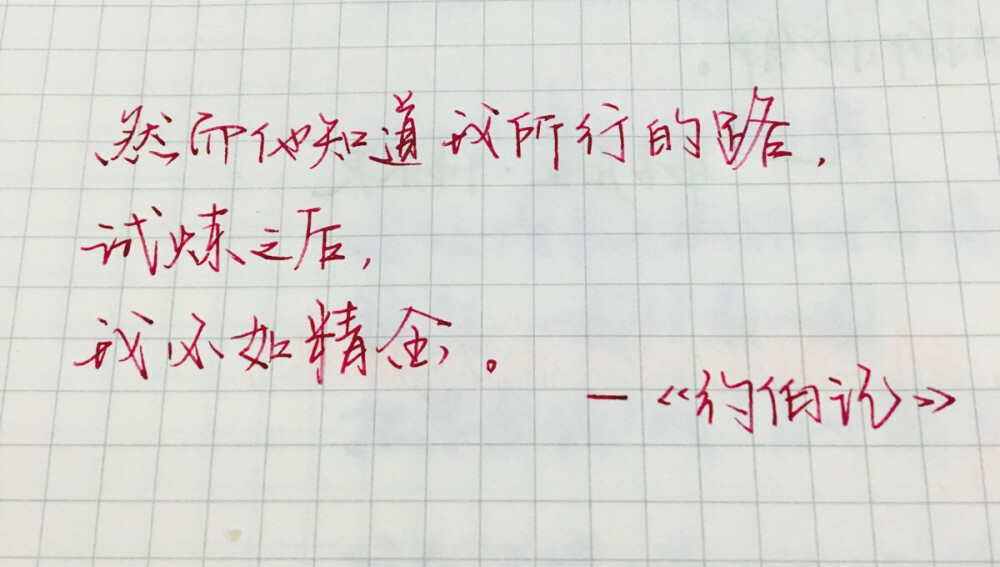 然而他知道我所行的路，
试炼之后，
我必如精金。
—《约伯记》